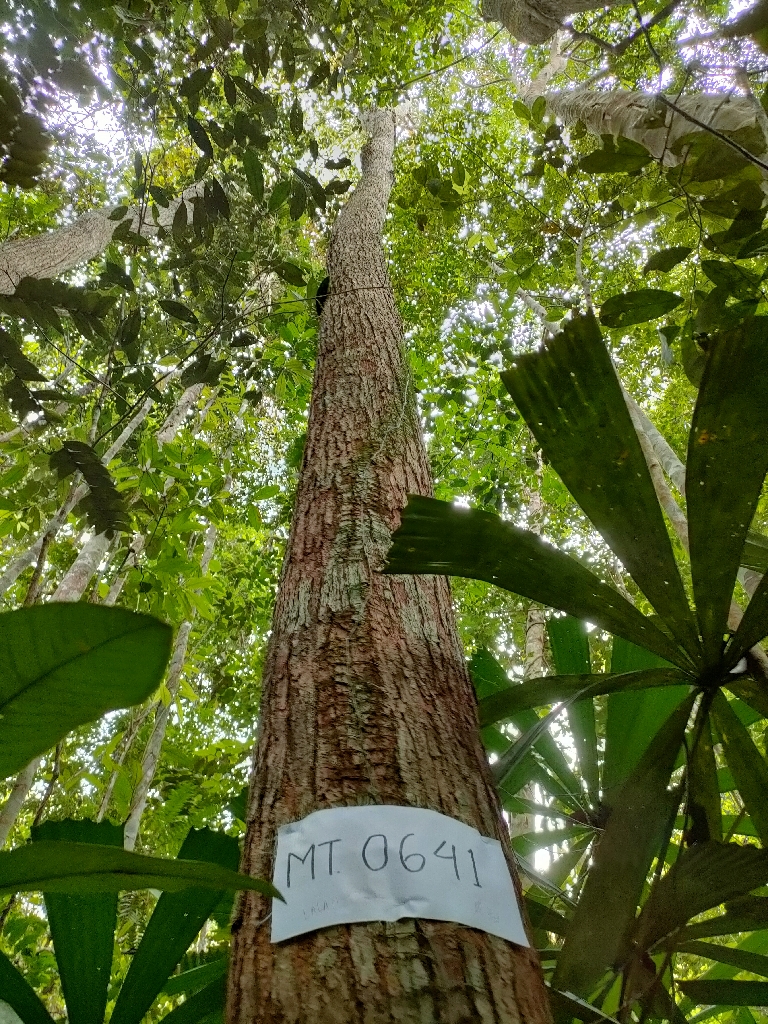 MT. 0641